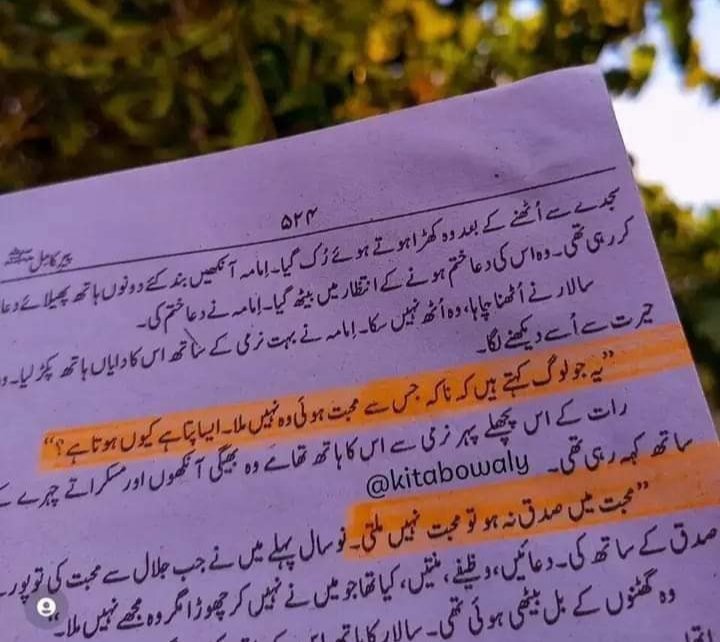 ۵۲۴
پیرِ کامل ﷺ
سجدے سے اُٹھنے کے بعد وہ کھڑا ہوتے ہوئے رُک گیا۔ اِمامہ آنکھیں بند کئے دونوں ہاتھ پھیلائے دعا
کر رہی تھی۔ وہ اس کی دعا ختم ہونے کے انتظار میں بیٹھ گیا۔ اِمامہ نے دعا ختم کی۔
سالار نے اُٹھنا چاہا، وہ اُٹھ نہیں سکا۔ اِمامہ نے بہت نرمی کے ساتھ اس کا دایاں ہاتھ پکڑ لیا۔ وہ
حیرت سے اُسے دیکھنے لگا۔
”یہ جو لوگ کہتے ہیں کہ ناکہ جس سے محبت ہوئی وہ نہیں ملا۔ ایسا پتا ہے کیوں ہوتا ہے؟“
رات کے اس پچھلے پہر نرمی سے اس کا ہاتھ تھامے وہ بھیگی آنکھوں اور مسکراتے چہرے کے
ساتھ کہہ رہی تھی۔
@kitabowaly
”محبت میں صدق نہ ہو تو محبت نہیں ملتی۔ نو سال پہلے میں نے جب جلال سے محبت کی تو پورے
صدق کے ساتھ کی۔ دعائیں، وظیفے، منتیں، کیا تھا جو میں نے نہیں کر چھوڑا مگر وہ مجھے نہیں ملا۔“
وہ گھٹنوں کے بل بیٹھی ہوئی تھی۔ سالار کا ہاتھ اس